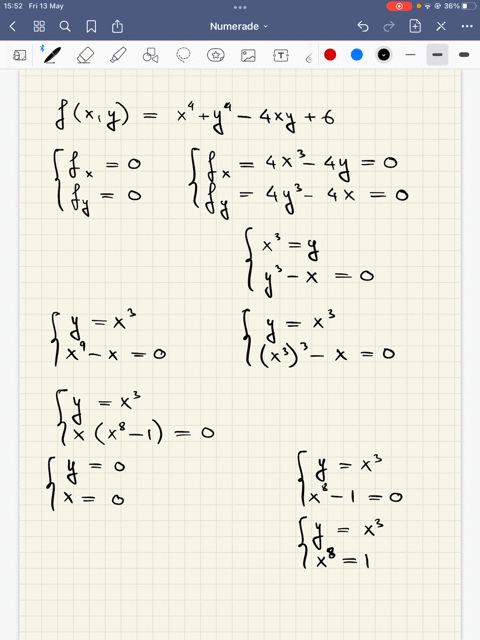 15:52 Fri 13 May 36%
Numerade
T
f(x,y) = x⁴+y⁴−4xy+6
{ fx = 0 { fx = 4x³−4y = 0
{ fy = 0 { fy = 4y³−4x = 0
{ x³ = y
{ y³−x = 0
{ y = x³ { y = x³
{ x⁹−x = 0 { (x³)³−x = 0
{ y = x³
{ x (x⁸−1) = 0
{ y = 0 { y = x³
{ x = 0 { x⁸−1 = 0
{ y = x³
{ x⁸ = 1